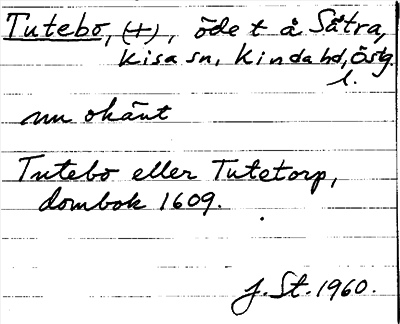 Tutebo, (+), öde t å Sätra,
Kisa sn, Kinda hd, Östg.
l.
nu okänt
Tutebo eller Tutetorp,
dombok 1609.
J. St. 1960.